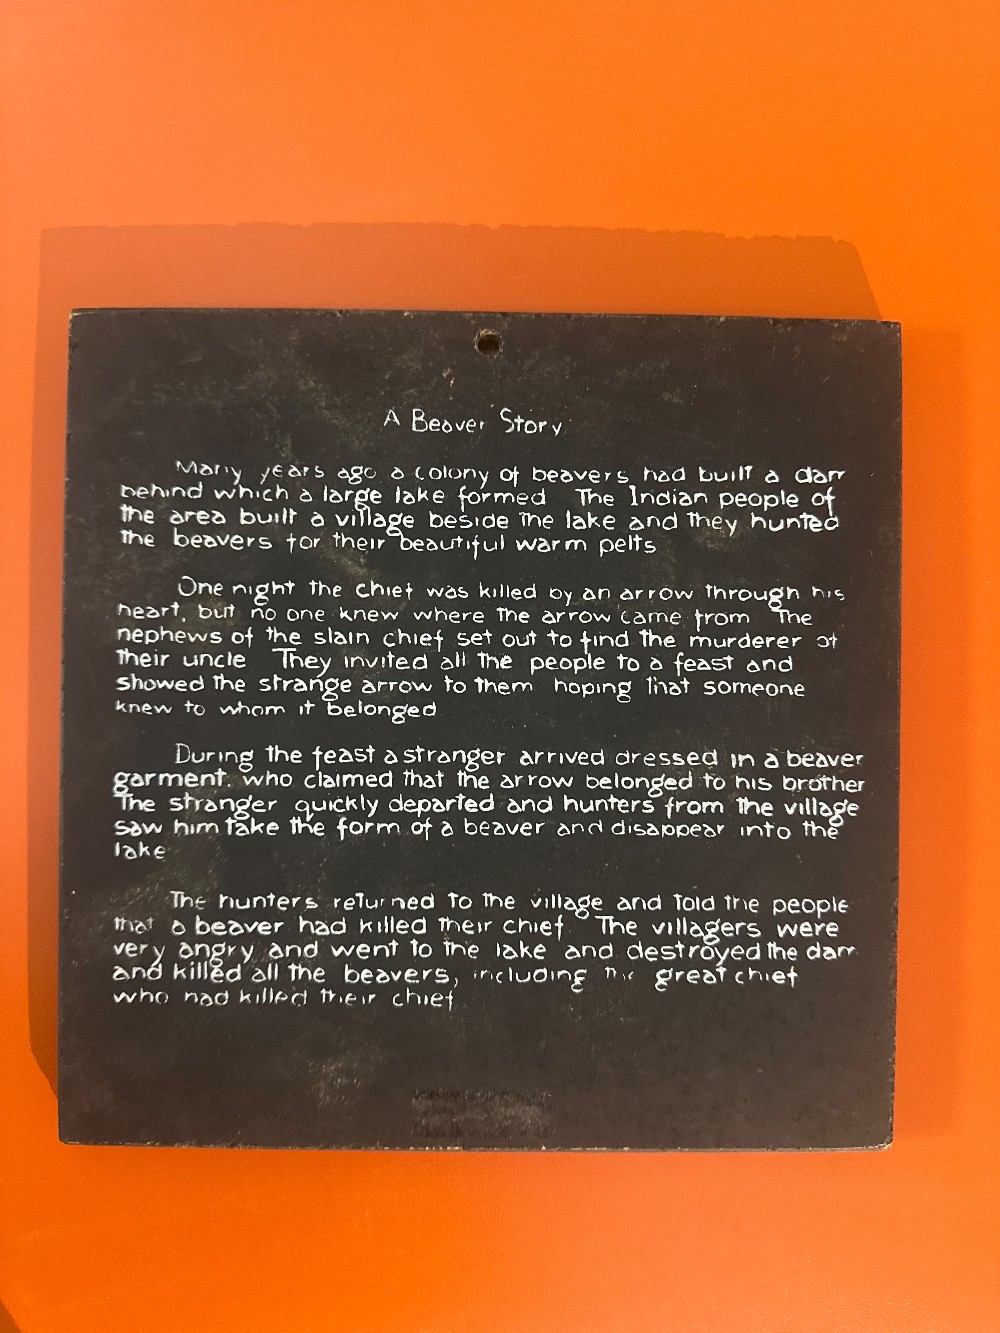 A Beaver Story
Many years ago a colony of beavers had built a dam
behind which a large lake formed The Indian people of
the area built a village beside the lake and they hunted
the beavers for their beautiful warm pelts
One night the chief was killed by an arrow through his
heart, but no one knew where the arrow came from The
nephews of the slain chief set out to find the murderer of
their uncle They invited all the people to a feast and
showed the strange arrow to them hoping that someone
knew to whom it belonged
During the feast a stranger arrived dressed in a beaver
garment. who claimed that the arrow belonged to his brother
The stranger quickly departed and hunters from the village
saw him take the form of a beaver and disappear into the
lake
The hunters returned to the village and told the people
that a beaver had killed their chief The villagers were
very angry and went to the lake and destroyed the dam
and killed all the beavers, including the great chief
who had killed their chief